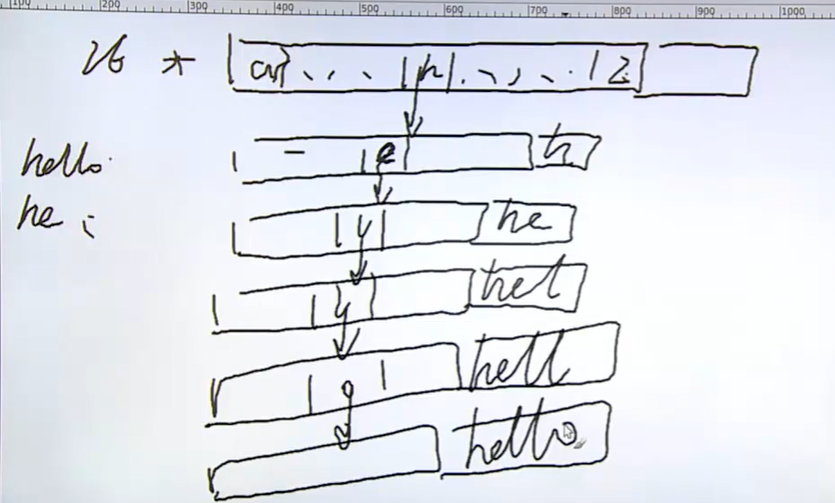 100 200 300 400 500 600 700 800 900 1000
26 * a . . . h . . . . z
hello. - e h
he : l he
l hel
o hell
hello